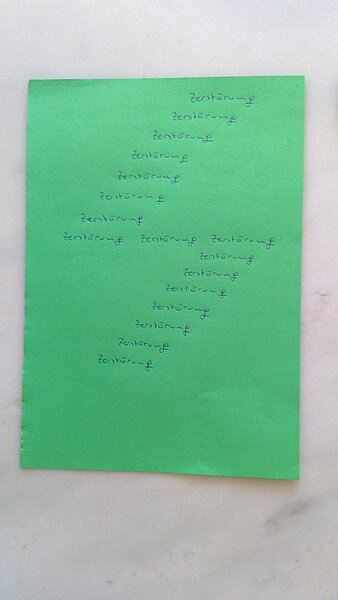 Zerstörung
Zerstörung
Zerstörung
Zerstörung
Zerstörung
Zerstörung
Zerstörung
Zerstörung Zerstörung Zerstörung
Zerstörung
Zerstörung
Zerstörung
Zerstörung
Zerstörung
Zerstörung
Zerstörung